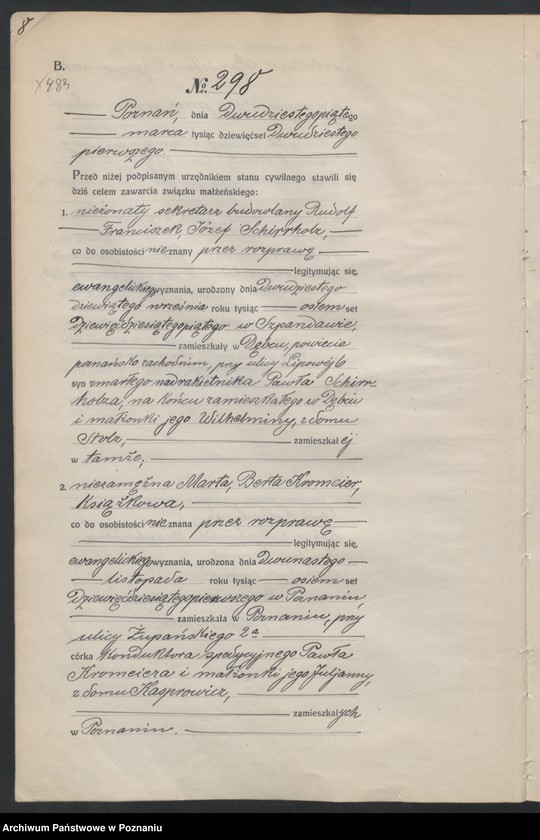 8
B.
X483
№ 298
Poznań, dnia Dwudziestegopiątego
marca tysiąc dziewięćset Dwudziestego
pierwszego
Przed niżej podpisanym urzędnikiem stanu cywilnego stawili się
dziś celem zawarcia związku małżeńskiego:
1. nieżonaty sekretarz budowlany Rudolf
Franciszek Józef Schirrholz,
co do osobistości nieznany przez rozprawę
legitymując się,
ewangelickiego wyznania, urodzony dnia Dwudziestego
dziewiątego września roku tysiąc osiemset
Dziewięćdziesiątegopiątego w Szpandawie,
zamieszkały w Dębcu, powiecie
poznańsko zachodnim, przy ulicy Lipowéj 6
syn zmarłego nadrakietnika Pawła Schirr-
holza, na końcu zamieszkałego w Dębcu
i małżonki jego Wilhelminy, z domu
Stolz, zamieszkałéj
w tamże,
2. niezamężna Marta, Berta Kromcier,
Książkowa,
co do osobistości nieznana przez rozprawę
legitymując się,
ewangelickiego wyznania, urodzona dnia Dwunastego
listopada roku tysiąc osiemset
Dziewięćdziesiątegopierwszego w Poznaniu,
zamieszkała w Poznaniu, przy
ulicy Żupańskiego 2a
córka konduktora spedycyjnego Pawła
Kromciera i małżonki jego Juljanny,
z domu Kasprowicz,
zamieszkałych
w Poznaniu.
Archiwum Państwowe w Poznaniu